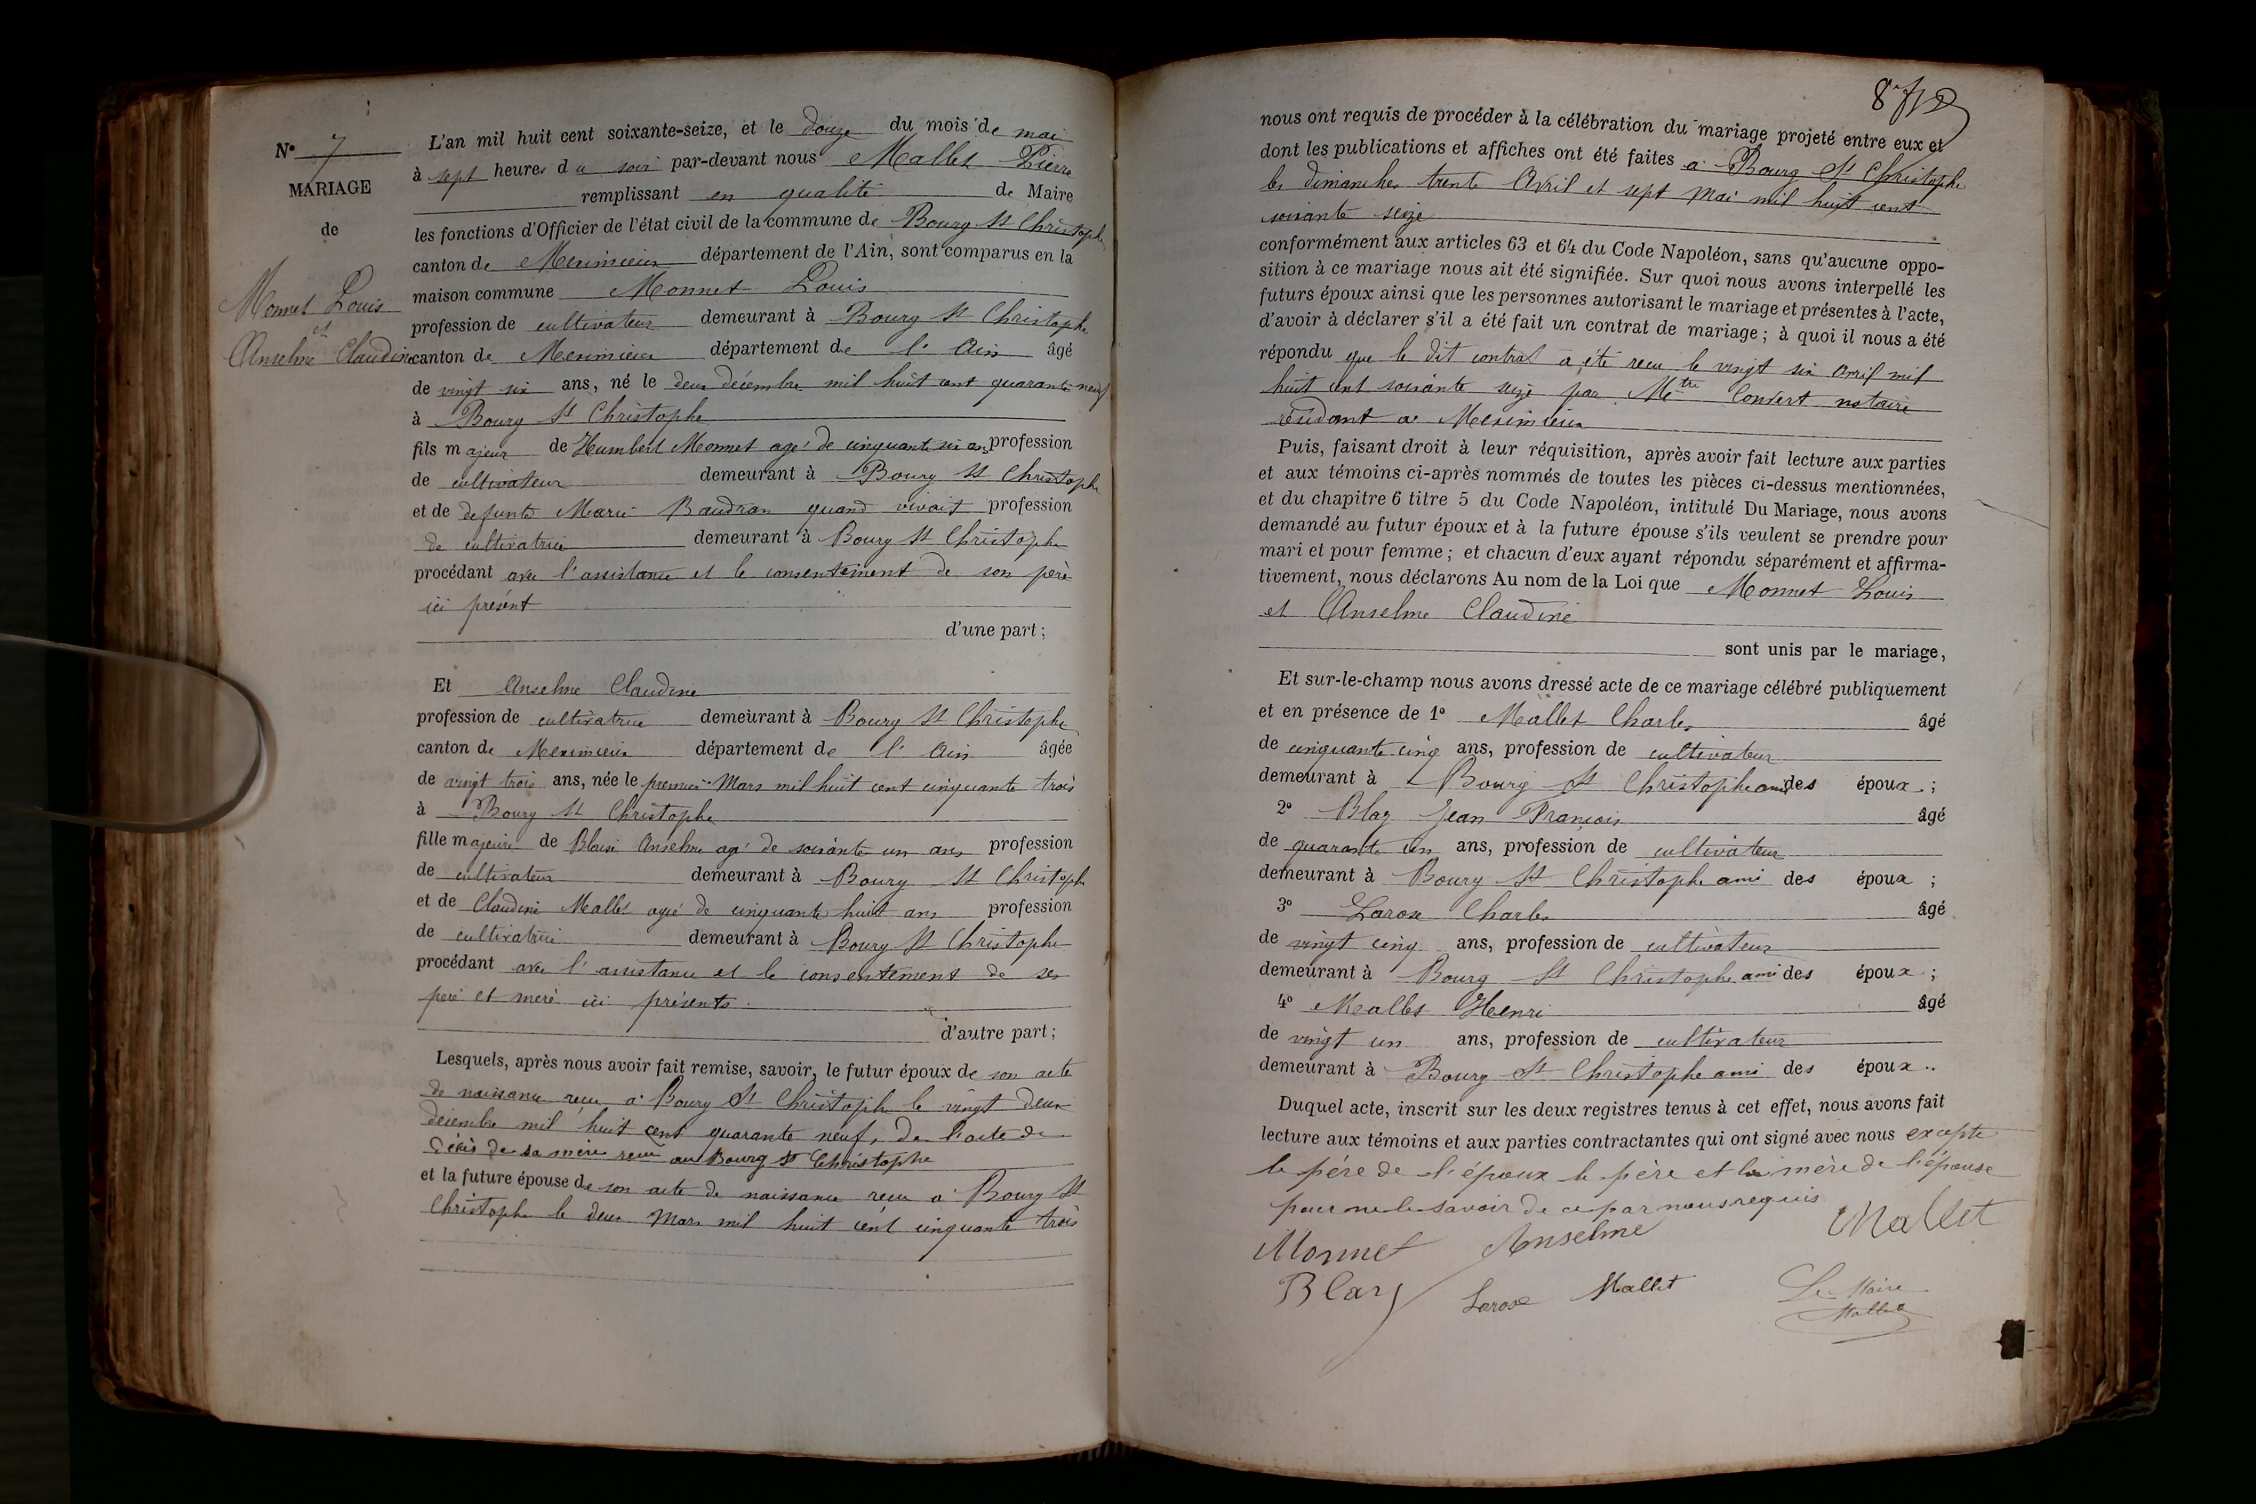 N° 7
MARIAGE
de
Monnet Louis
et
Anselme Claudine
L'an mil huit cent soixante-seize, et le douze du mois de mai
à sept heures du soir par-devant nous Mallet Pierre
remplissant en qualité de Maire
les fonctions d'Officier de l'état civil de la commune de Bourg St Christophe
canton de Meximieux département de l'Ain, sont comparus en la
maison commune Monnet Louis
profession de cultivateur demeurant à Bourg St Christophe
canton de Meximieux département de l'Ain âgé
de vingt six ans, né le deux décembre mil huit cent quarante neuf
à Bourg St Christophe
fils majeur de Humbert Monnet agé de cinquante six ans profession
de cultivateur demeurant à Bourg St Christophe
et de defunte Marie Baudran quand vivait profession
de cultivatrice demeurant à Bourg St Christophe
procédant avec l'assistance et le consentement de son père
ici présent
d'une part ;
Et Anselme Claudine
profession de cultivatrice demeurant à Bourg St Christophe
canton de Meximieux département de l'Ain âgée
de vingt trois ans, née le premier Mars mil huit cent cinquante trois
à Bourg St Christophe
fille majeure de Blaise Anselme agé de soixante un ans profession
de cultivateur demeurant à Bourg St Christophe
et de Claudine Mallet agée de cinquante huit ans profession
de cultivatrice demeurant à Bourg St Christophe
procédant avec l'assistance et le consentement de ses
père et mère ici présents
d'autre part ;
Lesquels, après nous avoir fait remise, savoir, le futur époux de son acte
de naissance recu a Bourg St Christophe le vingt deux
décembre mil huit cent quarante neuf, de l'acte de
décès de sa mère recu au Bourg St Christophe
et la future épouse de son acte de naissance recu a Bourg St
Christophe le deux Mars mil huit cent cinquante trois
nous ont requis de procéder à la célébration du mariage projeté entre eux et
dont les publications et affiches ont été faites a Bourg St Christophe
les dimanches trente Avril et sept Mai mil huit cent
soixante seize
conformément aux articles 63 et 64 du Code Napoléon, sans qu'aucune oppo-
sition à ce mariage nous ait été signifiée. Sur quoi nous avons interpellé les
futurs époux ainsi que les personnes autorisant le mariage et présentes à l'acte,
d'avoir à déclarer s'il a été fait un contrat de mariage ; à quoi il nous a été
répondu que le dit contrat a été recu le vingt six Avril mil
huit cent soixante seize par Mtre Convert notaire
résidant a Meximieux
Puis, faisant droit à leur réquisition, après avoir fait lecture aux parties
et aux témoins ci-après nommés de toutes les pièces ci-dessus mentionnées,
et du chapitre 6 titre 5 du Code Napoléon, intitulé Du Mariage, nous avons
demandé au futur époux et à la future épouse s'ils veulent se prendre pour
mari et pour femme ; et chacun d'eux ayant répondu séparément et affirma-
tivement, nous déclarons Au nom de la Loi que Monnet Louis
et Anselme Claudine
sont unis par le mariage,
Et sur-le-champ nous avons dressé acte de ce mariage célébré publiquement
et en présence de 1° Mallet Charles âgé
de cinquante cinq ans, profession de cultivateur
demeurant à Bourg St Christophe ami des époux ;
2° Blay Jean François âgé
de quarante un ans, profession de cultivateur
demeurant à Bourg St Christophe ami des époux ;
3° Larose Charles âgé
de vingt cinq ans, profession de cultivateur
demeurant à Bourg St Christophe ami des époux ;
4° Mallet Henri âgé
de vingt un ans, profession de cultivateur
demeurant à Bourg St Christophe ami des époux.
Duquel acte, inscrit sur les deux registres tenus à cet effet, nous avons fait
lecture aux témoins et aux parties contractantes qui ont signé avec nous excepté
le père de l'époux le père et la mère de l'épouse
pour ne le savoir de ce par nous requis
Monnet Anselme Mallet
Blay Larose Mallet Le Maire
Mallet